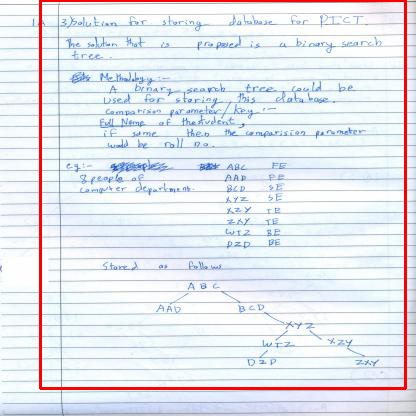 1.A 3) Solution for storing database for PICT.
The solution that is proposed is a binary search
tree.
Methodology :-
A binary search tree could be
used for storing this database.
comparision parameter/key :-
Full Name of the student,
if same then the comparision parameter
would be roll no.
eg:- ABC FE
8 people of AAD FE
computer department. BCD SE
XYZ SE
XZY TE
ZXY TE
WTZ BE
DZD BE
Stored as follows
ABC
AAD BCD
XYZ
WTZ XZY
DZD ZXY